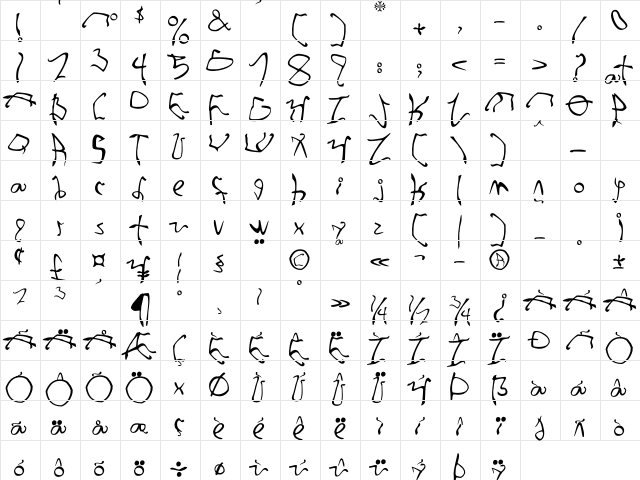 ! $ % & ( ) * + , - . / 0
1 2 3 4 5 6 7 8 9 : ; < = > ? @
A B C D E F G H I J K L M N O P
Q R S T U V W X Y Z [ \ ] _
a b c d e f g h i j k l m n o p
q r s t u v w x y z { | } ~ . ¡
¢ £ ¤ ¥ ¦ § © « ¬ - ® ±
2 3 ¶ · ¸ ¹ º » ¼ ½ ¾ ¿ À Á Â
Ã Ä Å Æ Ç È É Ê Ë Ì Í Î Ï Ð Ñ Ò
Ó Ô Õ Ö × Ø Ù Ú Û Ü Ý Þ ß à á â
ã ä å æ ç è é ê ë ì í î ï ð ñ ò
ó ô õ ö ÷ ø ù ú û ü ý þ ÿ